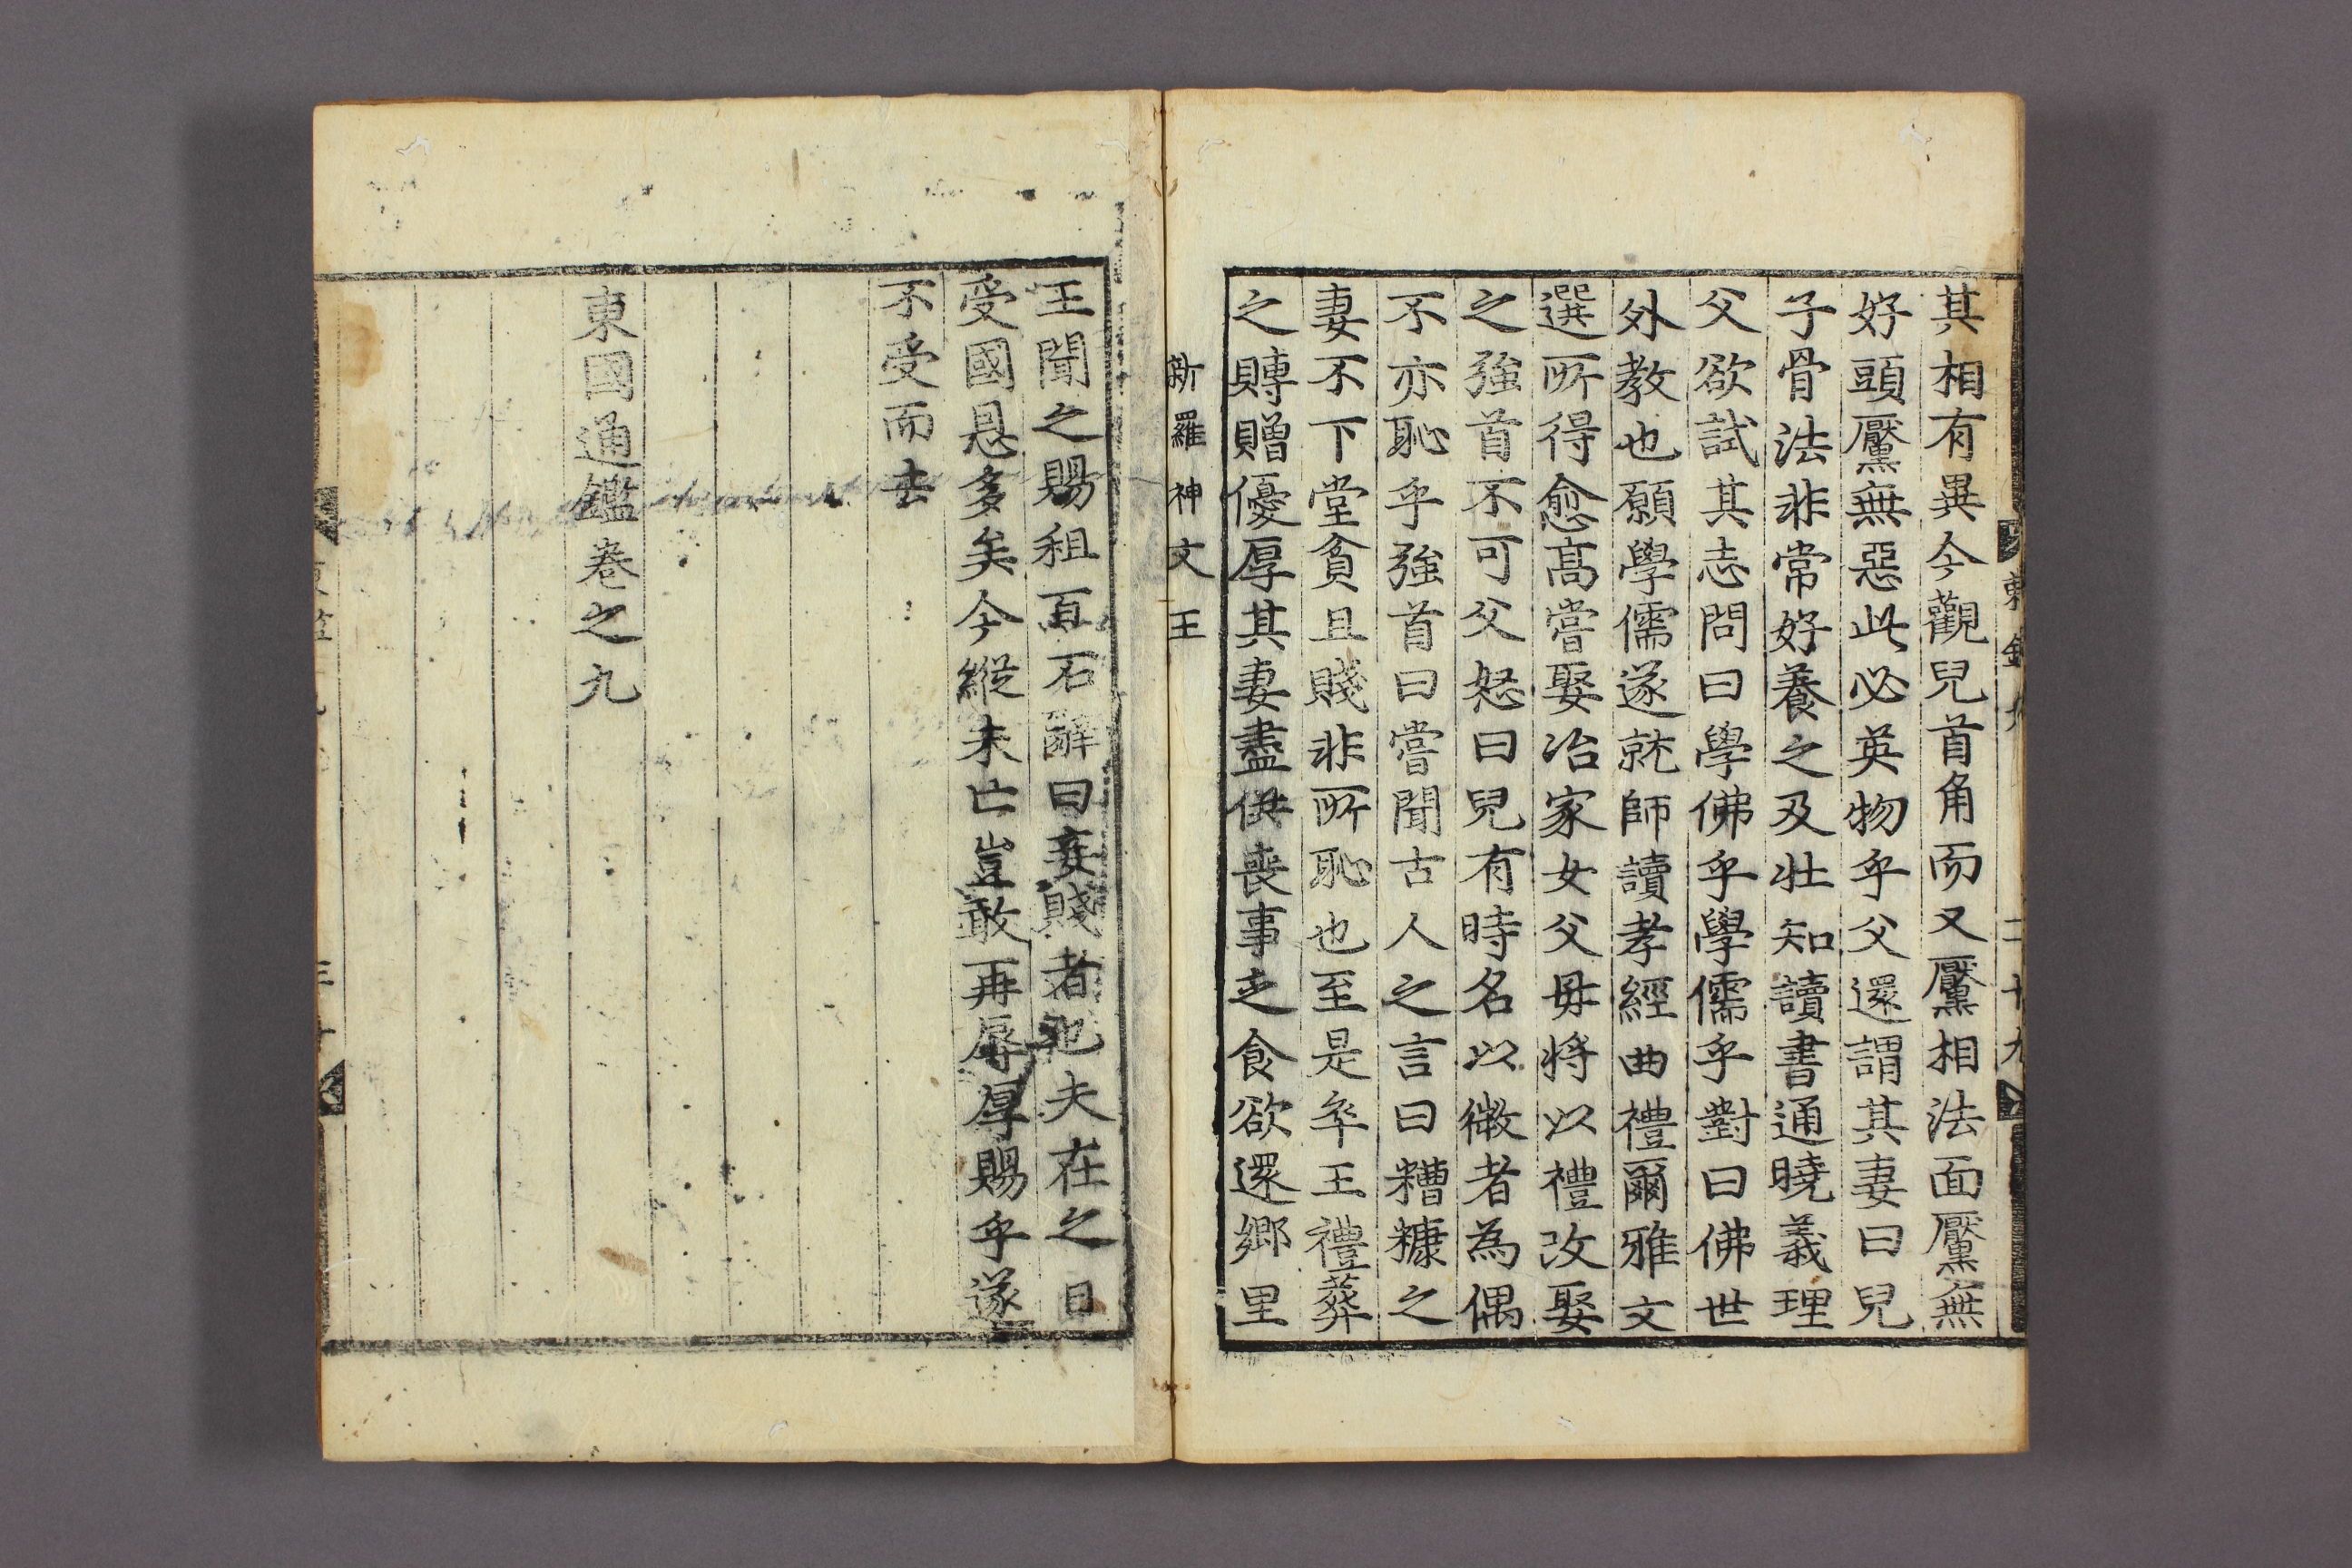 其相有異今觀兒首角而又黶相法面黶無
好頭黶無惡此必英物乎父還謂其妻曰兒
子骨法非常好養之及壯知讀書通曉義理
父欲試其志問曰學佛乎學儒乎對曰佛世
外教也願學儒遂就師讀孝經曲禮爾雅文
選所得愈高嘗娶冶家女父毋將以禮改娶
之強首不可父怒曰兒有時名以微者為偶
不亦恥乎強首曰嘗聞古人之言曰糟糠之
妻不下堂貧且賤非所恥也至是卒王禮葬
之賻贈優厚其妻盡供喪事乏食欲還鄉里
新羅神文王
王聞之賜租百石辭曰妾賤者也夫在之日
受國恩多矣今縱未亡豈敢再辱厚賜乎遂
不受而去
東國通鑑卷之九